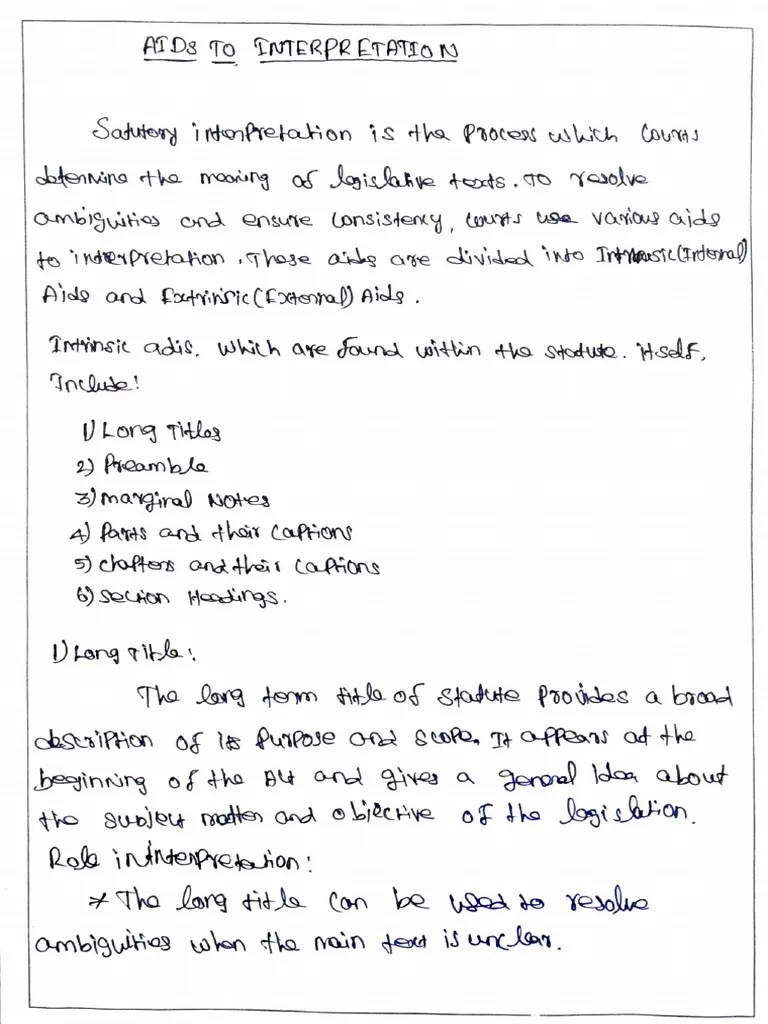 AIDS TO INTERPRETATION
Satutory interpretation is the process which courts
determine the meaning of legislative texts. To resolve
ambiguities and ensure consistency, courts use various aids
to interpretation. These aids are divided into Intrinsic(Internal)
Aids and Extrinsic(External) Aids.
Intrinsic adis. which are found within the statute. itself,
Include:
1) Long Titles
2) Preamble
3) Marginal Notes
4) Parts and their Captions
5) Chapters and their Captions
6) Section Headings.
1) Long Title:
The long term title of statute provides a broad
description of its purpose and scope. It appears at the
beginning of the Act and gives a general idea about
the subject matter and objective of the legislation.
Role in Interpretation:
* The long title can be used to resolve
ambiguities when the main text is unclear.